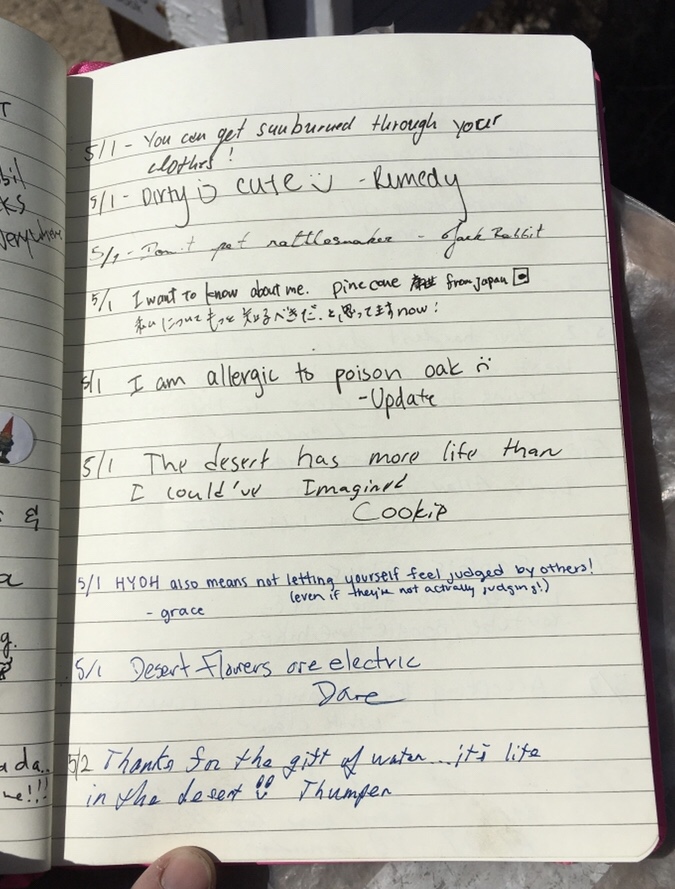 5/1 - You can get sunburned through your
clothes!
5/1 - Dirty :) cute :) - Remedy
5/1 - Don't pet rattlesnakes - Jack Rabbit
5/1 I want to know about me. Pinecone from Japan
私についてもっと知るべきだ、と思ってますnow!
5/1 I am allergic to poison oak :(
- Update
5/1 The desert has more life than
I could've Imagined
Cookie
5/1 HYOH also means not letting yourself feel judged by others!
(even if they're not actually judging!)
- grace
5/1 Desert Flowers are electric
Dare
5/2 Thanks for the gift of water...it's life
in the desert Thumper